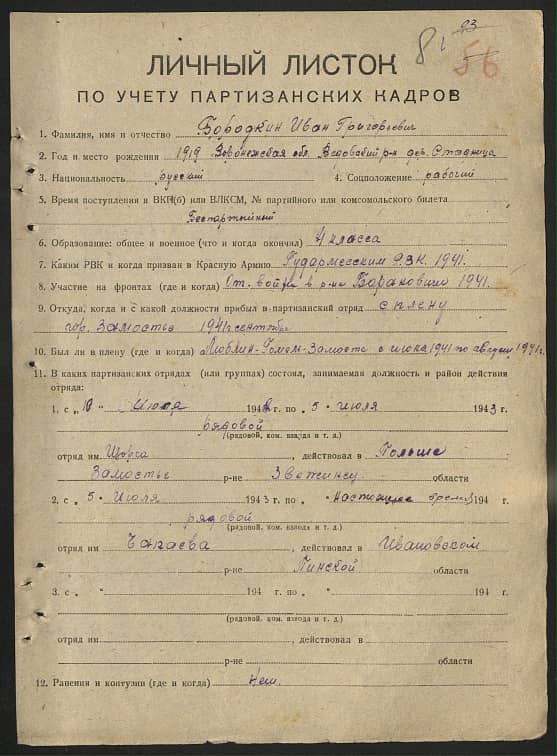 23
81
56
ЛИЧНЫЙ ЛИСТОК
ПО УЧЕТУ ПАРТИЗАНСКИХ КАДРОВ
1. Фамилия, имя и отчество Бородкин Иван Григорьевич
2. Год и место рождения 1919 Воронежская обл. Ведовский р-н дер. Стадница
3. Национальность русский 4. Соцположение рабочий
5. Время поступления в ВКП(б) или ВЛКСМ, № партийного или комсомольского билета
Беспартийный
6. Образование: общее и военное (что и когда окончил) 4 класса
7. Каким РВК и когда призван в Красную Армию Гудермесским РВК. 1941.
8. Участие на фронтах (где и когда) От. войне в р-не Барановичи 1941.
9. Откуда, когда и с какой должности прибыл в партизанский отряд с плену
гор. Замостье 1941 г. сентябрь
10. Был ли в плену (где и когда) Люблин-Гомель-Замость с июня 1941 по август 1941 г.
11. В каких партизанских отрядах (или группах) состоял, занимаемая должность и район действия
отряда:
1. с " Июня 1942 г. по " 5 " июля 1943 г.
рядовой
(рядовой, ком. взвода и т. д.)
отряд им. Щорса, действовал в Польше
Замостье р-не области
2. с " 5 " Июля 1943 г. по " Настоящее время 194 г.
рядовой
(рядовой, ком. взвода и т. д.)
отряд им Чапаева, действовал в Ивановском
р-не Пинской области
3. с " " 194 г. по " " 194 г.
(рядовой, ком. взвода и т. д.)
отряд им, действовал в
р-не области
12. Ранения и контузии (где и когда) Нет.